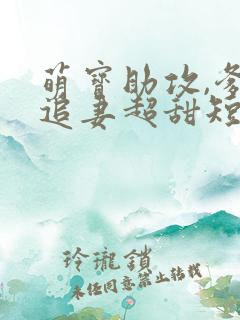 萌宝助攻,爹
追妻超甜短
玲瓏鎖
未经同意禁止转载